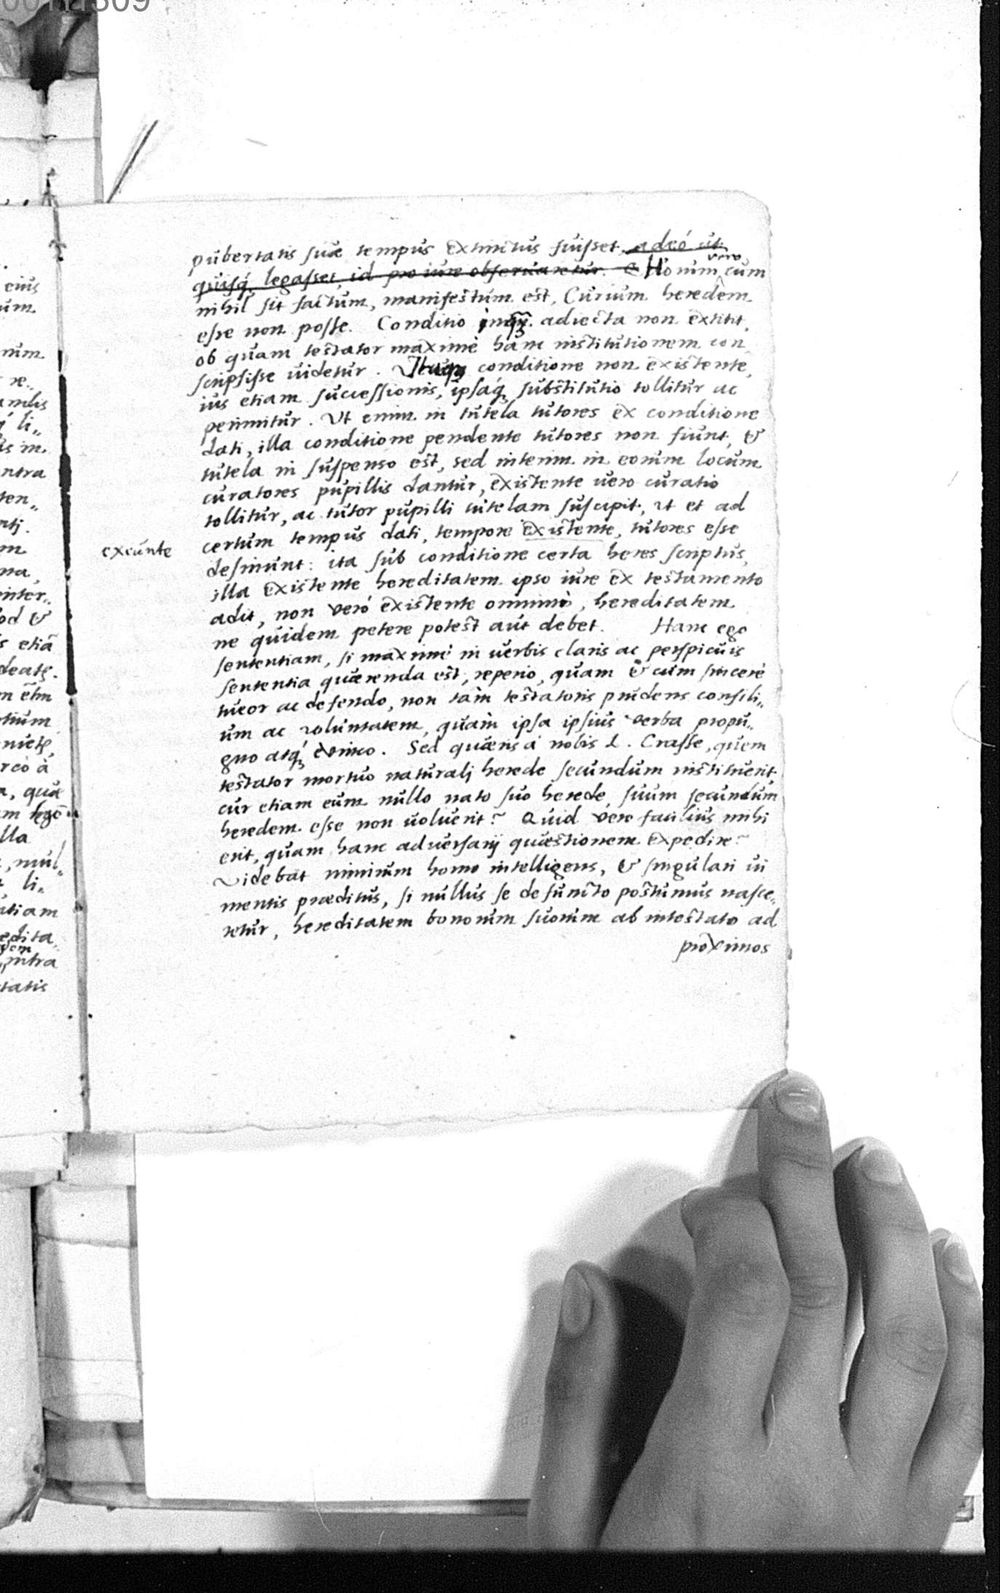 pubertatis suæ tempus extinctus fuisset adeó ut
quisq́; legasset, id pro iure obseruaretur. Horum vero cum
nihil sit factum, manifestum est, Curium heredem
esse non posse. Conditio adiecta non extitit,
ob quam testator maximè hanc institutionem con
scripsisse uidetur. Itaq; conditione non existente,
ius etiam successionis, ipsaq́; substitutio tollitur ac
perimitur. Ut enim in tutela tutores ex conditione
dati, illa conditione pendente tutores non fiunt, &
tutela in suspenso est, sed interim in eorum locum
curatores pupillis dantur, existente uero curatio
tollitur, ac tutor pupilli tutelam suscipit, ut et ad
certum tempus dati, tempore existente, tutores esse
exeunte
desinunt: ita sub conditione certa heres scriptus,
illa existente hereditatem ipso iure ex testamento
adit, non veró existente omnino, hereditatem
ne quidem petere potest aut debet. Hanc ego
sententiam, si maximè in uerbis claris ac perspicuis
sententia quærenda est, reperio, quam & cum sincerè
tueor ac defendo, non tàm testatoris prudens consili„
um ac voluntatem, quàm ipsa ipsius verba propu„
gno atq́; euinco. Sed quæris à nobis L. Crasse, quem
testator mortuo naturali herede secundum instituerit
cur etiam eum nullo nato suo herede, suum secundum
heredem esse non uoluerit? Quid vero facilius mihi
erit, quam hanc adversarij quæstionem expedire?
Videbat nimirum homo intelligens, & singulari ui
mentis præditus, si nullus se defuncto postumus nasce„
retur, hereditatem bonorum suorum ab intestato ad
proximos
eius
um
ntra
ten„
inter„
od &
s etiã
tium
lla
li„
ntra
tatis